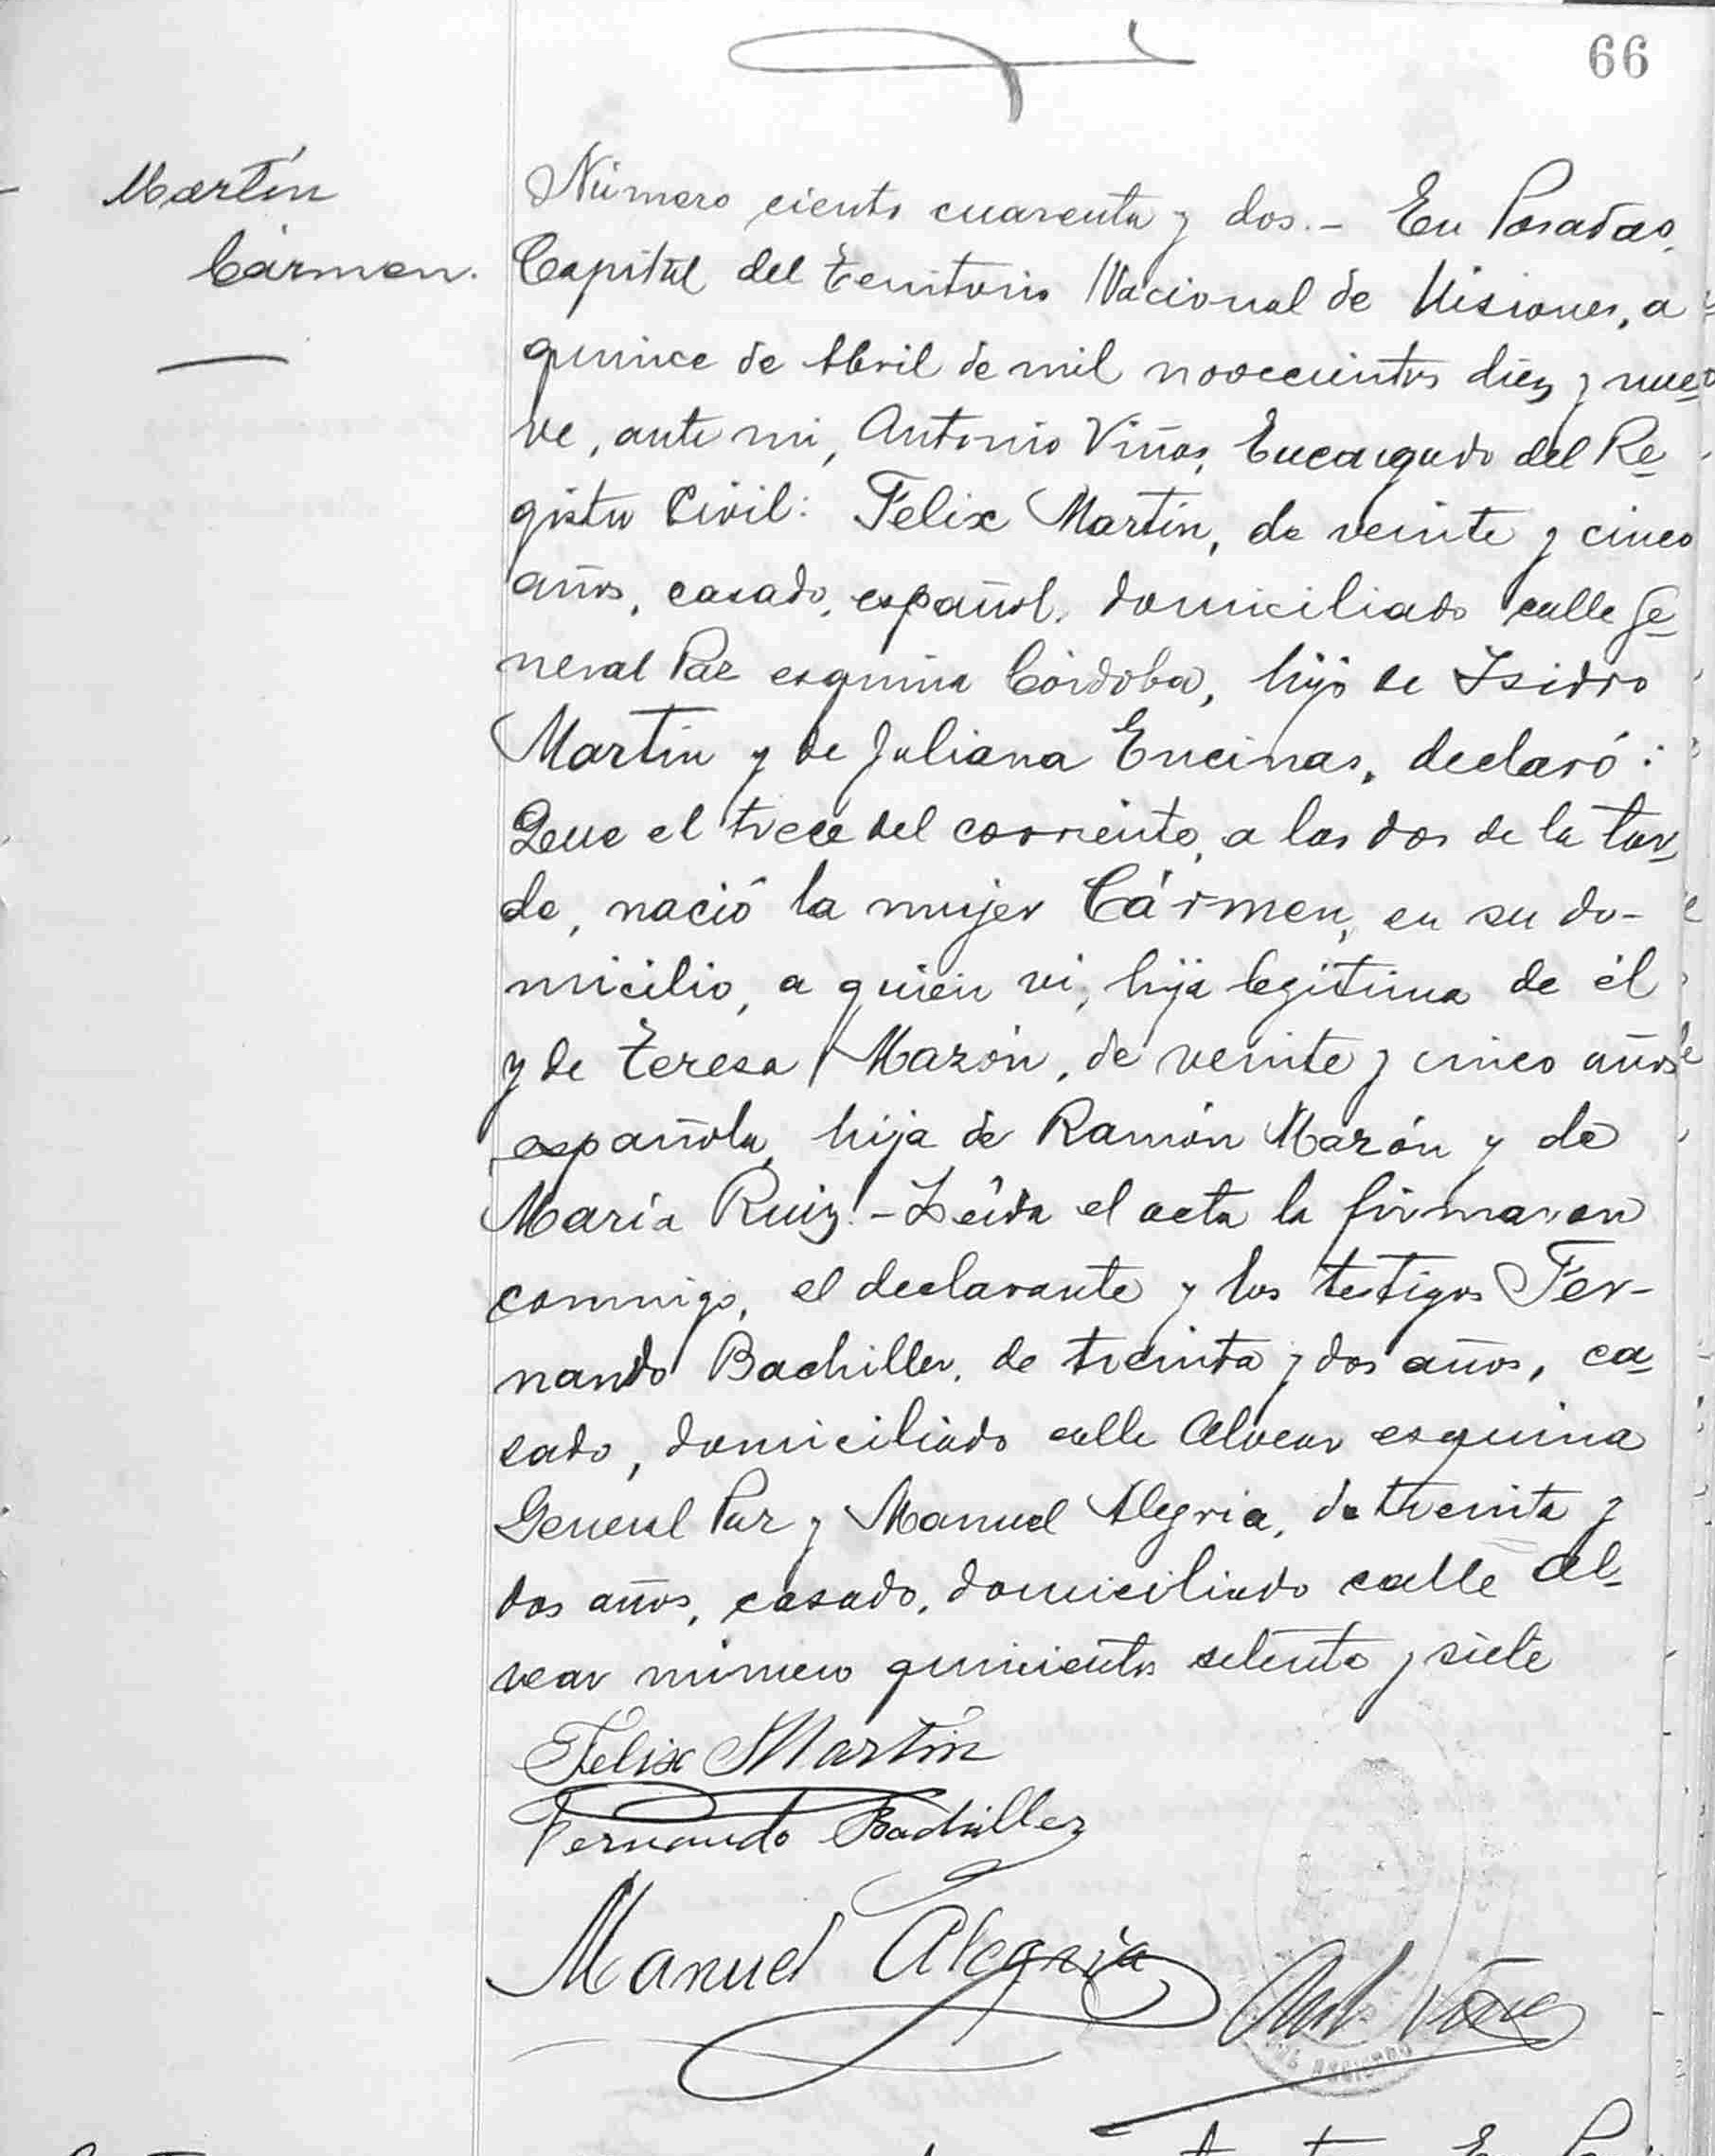 66
Martín
Cármen.
Número ciento cuarenta y dos.- En Posadas,
Capital del Territorio Nacional de Misiones, a
quince de Abril de mil novecientos diez y nue-
ve, ante mi, Antonio Viñas, Encargado del Re-
gistro Civil: Felix Martín, de veinte y cinco
años, casado, español, domiciliado calle Ge-
neral Paz esquina Córdoba, hijo de Isidro
Martín y de Juliana Encinas, declaró:
Que el trece del corriente, a las dos de la tar-
de, nació la mujer Cármen, en su do-
micilio, a quién vi, hija legítima de él
y de Teresa Mazón, de veinte y cinco años
española, hija de Ramón Mazón y de
María Ruiz.- Leída el acta la firmaron
conmigo, el declarante y los testigos Fer-
nando Bachiller, de treinta y dos años, ca-
sado, domiciliado calle Alvear esquina
General Paz y Manuel Alegria, de treinta y
dos años, casado, domiciliado calle Al-
vear número quinientos setenta y siete
Felix Martín
Fernando Bachiller
Manuel Alegria
Ant. Viñas